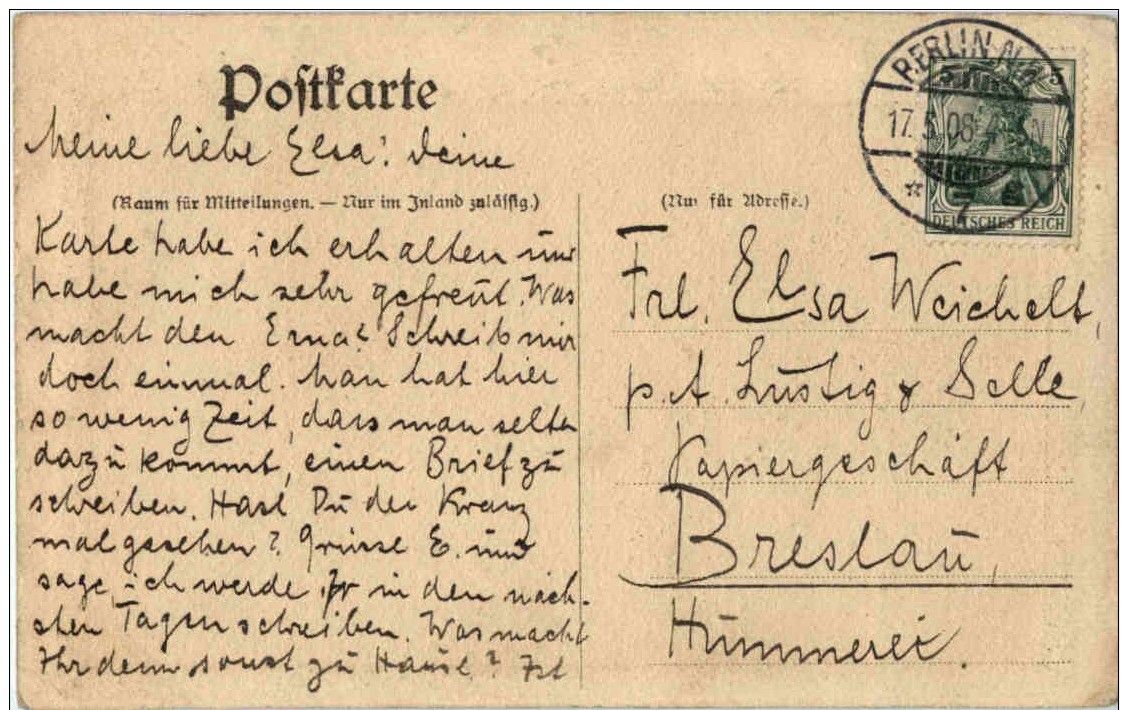 Postkarte
Meine liebe Elsa! Deine
(Raum für Mitteilungen. — Nur im Inland zulässig.)
Karte habe ich erhalten und
habe mich sehr gefreut. Was
macht den Erna? Schreib mir
doch einmal. Man hat hier
so wenig Zeit, dass man selten
dazu kommt, einen Brief zu
schreiben. Hast Du den Kranz
mal gesehen? Grüsse E. und
sage, ich werde Ihr in den näch-
sten Tagen schreiben. Was macht
Ihr denn sonst zu Hause? Ist
BERLIN N.
17.5.08
DEUTSCHES REICH
(Nur für Adresse.)
Frl. Elsa Weichelt,
p. A. Lustig & Selle,
Papiergeschäft
Breslau,
Hummerei.